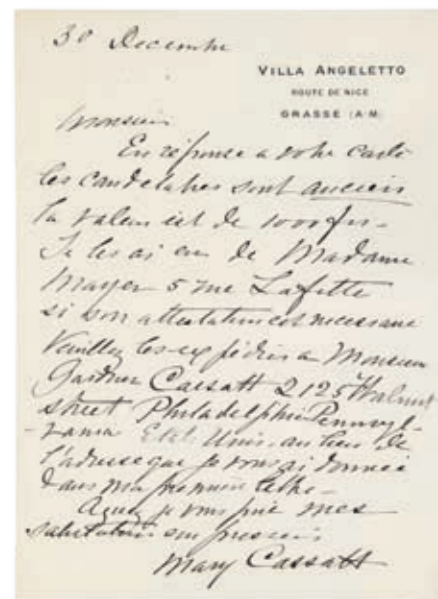 30 Decembre
VILLA ANGELETTO
ROUTE DE NICE
GRASSE (A·M)
Monsieur
En réponse a votre carte
les candelabres sont anciens
la valeur est de 1000 frs-
Je les ai eu de Madame
Mayer 5 rue Lafitte
si son attestation est necessaire
Veuillez les expédier a Monsieur
Gardner Cassatt 2125 Walnut
street Philadelphie Pennsyl-
-vania Etats Unis. au lieu de
l'adresse que je vous ai donnée
dans ma premiere lettre-
Agréez je vous prie mes
salutations empressées
Mary Cassatt